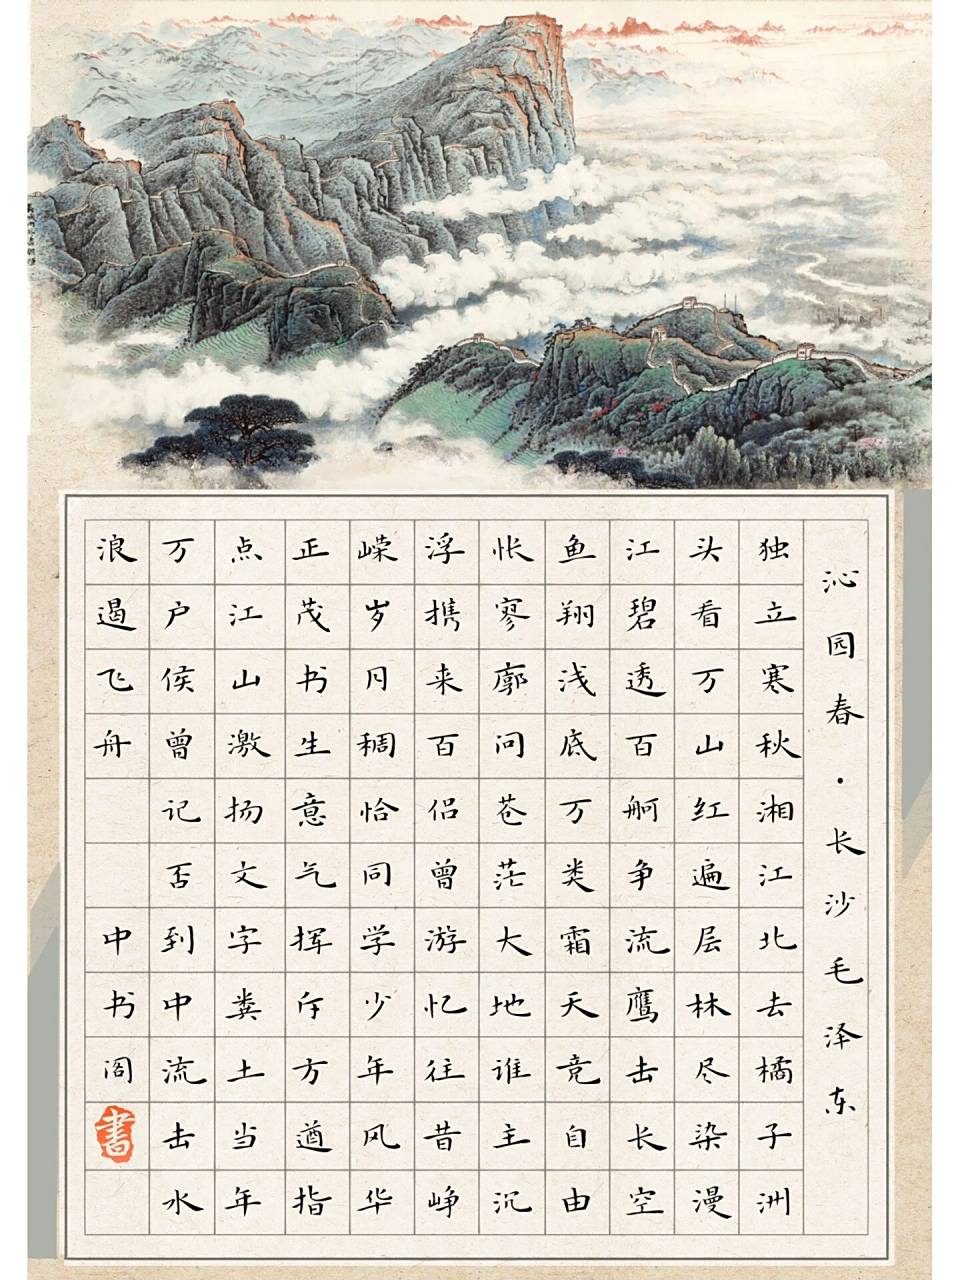 沁园春·长沙毛泽东
独立寒秋湘江北去橘子洲
头看万山红遍层林尽染漫
江碧透百舸争流鹰击长空
鱼翔浅底万类霜天竞自由
怅寥廓问苍茫大地谁主沉
浮携来百侣曾游忆往昔峥
嵘岁月稠恰同学少年风华
正茂书生意气挥斥方遒指
点江山激扬文字粪土当年
万户侯曾记否到中流击水
浪遏飞舟
中书阁
書